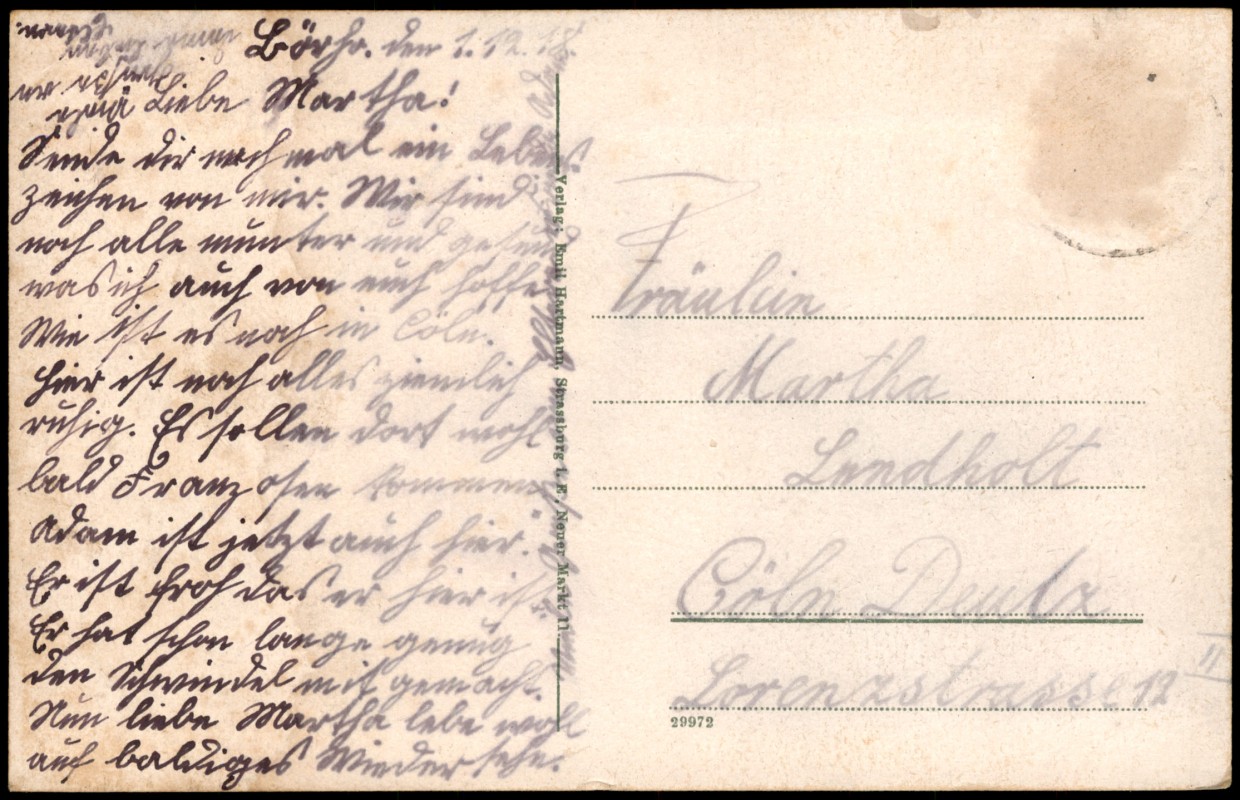 den 1.12.18.
Liebe Martha!
Sende dir nochmal ein Lebens
zeichen von mir. Wir sind
noch alle munter und gesund
was ich auch von euch hoffe.
Wie ist es noch in Cöln.
Hier ist noch alles ziemlich
ruhig. Es sollen dort wohl
bald Franzosen kommen.
Adam ist jetzt auch hier.
Er ist froh das er hier ist.
Er hat schon lange genug
den Schwindel mit gemacht.
Nun liebe Martha lebe woll
auf baldiges Wiedersehn.
Verlag: Emil Hartmann, Strassburg i. E., Neuer Markt 11.
Fräulein
Martha
Lendholt
Cöln Deutz
Lorenzstrasse 12 II
29972